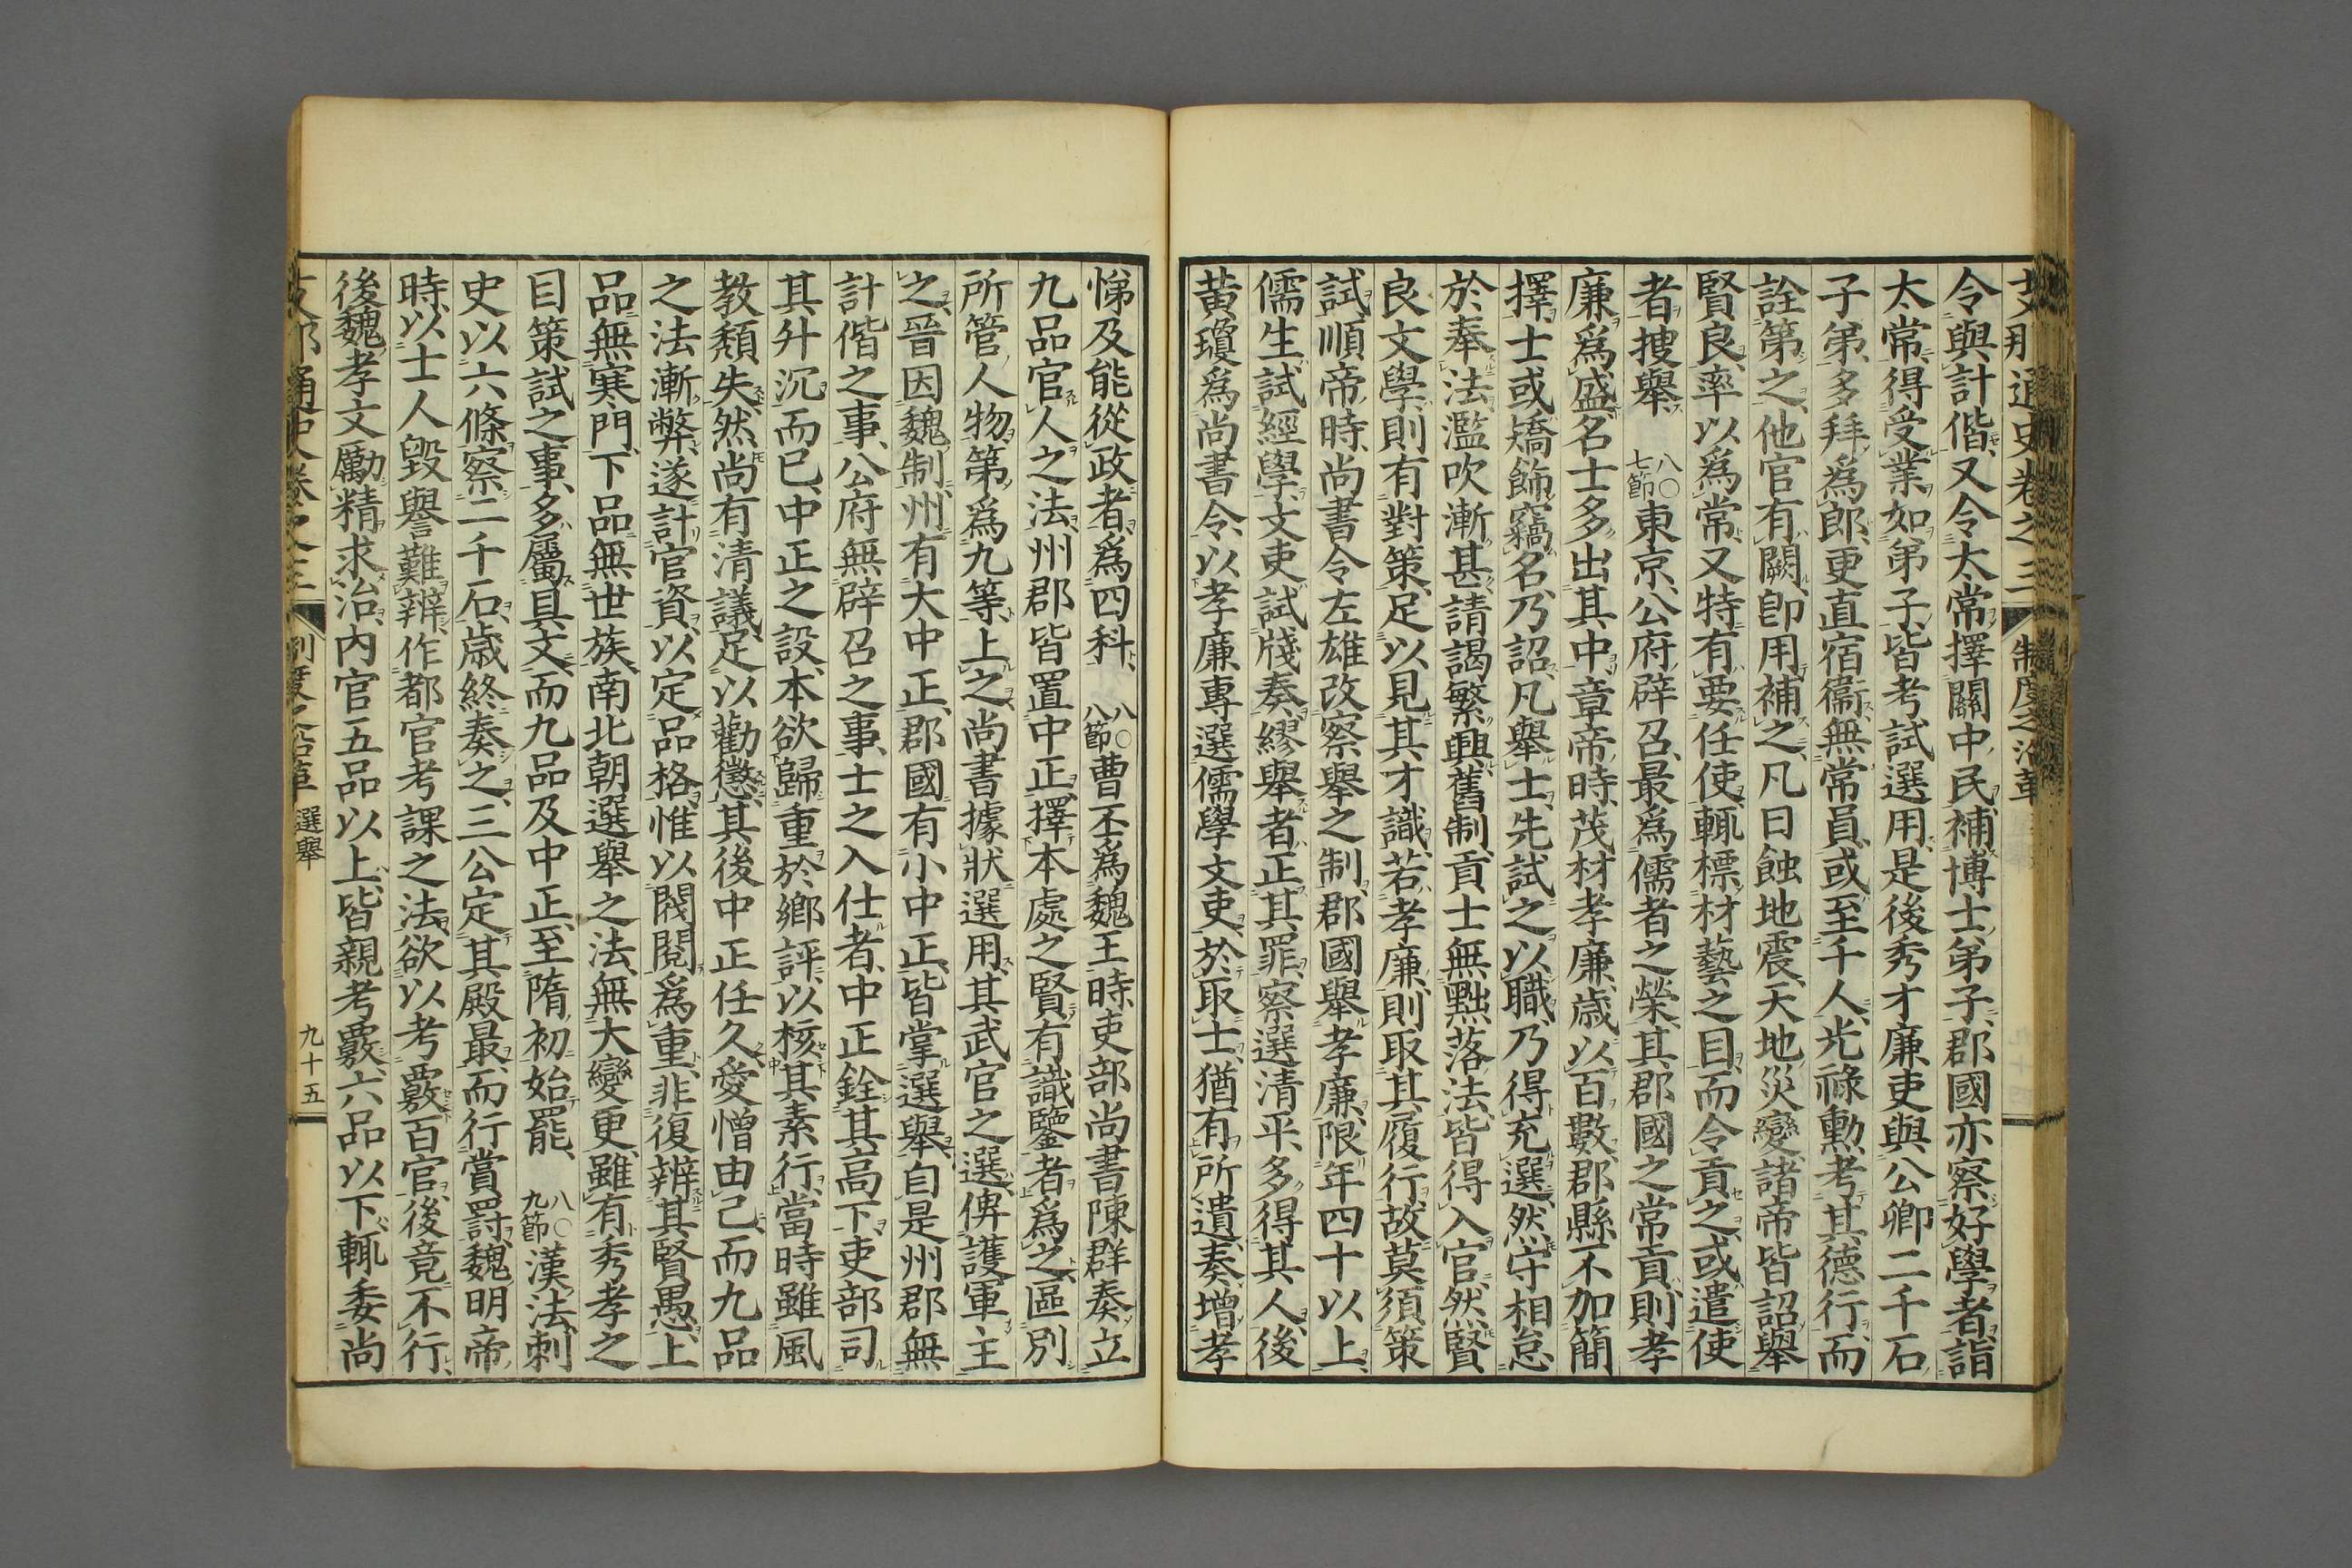 支那通史卷之三 制度之沿革
令與計偕又令太常擇關中民補博士弟子郡國亦察好學者詣
太常得受業如弟子皆考試選用是後秀才廉吏與公卿二千石
子弟多拜爲郎更直宿衞無常員或至千人光祿勳考其德行而
詮第之他官有闕卽用補之凡日蝕地震天地災變諸帝皆詔舉
賢良率以爲常又特有要任使輒標材藝之目而令貢之或遣使
者搜舉 八〇七節 東京公府辟召最爲儒者之榮其郡國之常貢則孝
廉爲盛名士多出其中章帝時茂材孝廉歲以百數郡縣不加簡
擇士或矯飾竊名乃詔凡舉士先試之以職乃得充選然守相怠
於奉法濫吹漸甚請謁繁興舊制貢士無黜落法皆得入官然賢
良文學則有對策足以見其才識若孝廉則取其履行故莫須策
試順帝時尚書令左雄改察舉之制郡國舉孝廉限年四十以上
儒生試經學文吏試牋奏繆舉者正其罪察選清平多得其人後
黃瓊爲尚書令以孝廉專選儒學文吏於取士猶有所遺奏增孝
悌及能從政者爲四科 八〇八節 曹丕爲魏王時吏部尚書陳群奏立
九品官人之法州郡皆置中正擇本處之賢有識鑒者爲之區別
所管人物第爲九等上之尚書據狀選用其武官之選俾護軍主
之晉因魏制州有大中正郡國有小中正皆掌選舉自是州郡無
計偕之事公府無辟召之事士之入仕者中正銓其高下吏部司
其升沉而已中正之設本欲歸重於鄉評以核其素行當時雖風
教頹失然尚有清議足以勸懲其後中正任久愛憎由己而九品
之法漸弊遂計官資以定品格惟以閥閱爲重非復辨其賢愚上
品無寒門下品無世族南北朝選舉之法無大變更雖有秀孝之
目策試之事多屬具文而九品及中正至隋初始罷 八〇九節 漢法刺
史以六條察二千石歲終奏之三公定其殿最而行賞罰魏明帝
時以士人毀譽難辨作都官考課之法欲以考覈百官後竟不行
後魏孝文勵精求治內官五品以上皆親考覈六品以下輒委尚
支那通史卷之三 制度之沿革 選舉 九十五